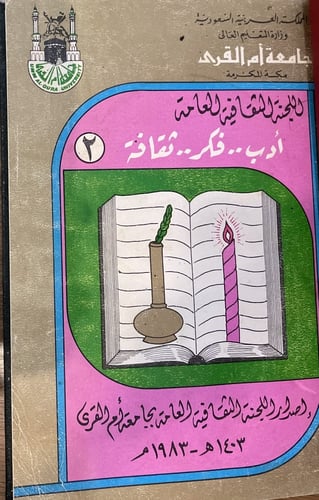 المملكة العربية السعودية
وزارة التعليم العالي
جامعة أم القرى
مكة المكرمة
UMM AL-QURA UNIVERSITY
اللجنة الثقافية العامة
أدب .. فكر .. ثقافة
٢
إصدار اللجنة الثقافية العامة بجامعة أم القرى
١٤٠٣ هـ - ١٩٨٣ م